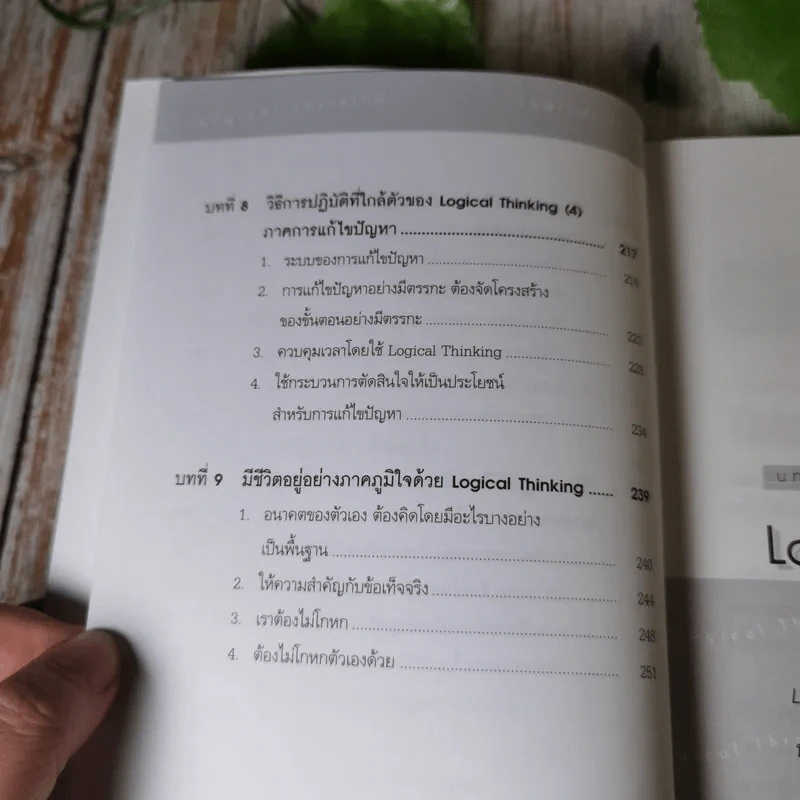 Logical Thinking
บทที่ 8 วิธีการปฏิบัติที่ใกล้ตัวของ Logical Thinking (4)
ภาคการแก้ไขปัญหา 217
1. ระบบของการแก้ไขปัญหา
2. การแก้ไขปัญหาอย่างมีตรรกะ ต้องจัดโครงสร้าง
ของขั้นตอนอย่างมีตรรกะ 223
3. ควบคุมเวลาโดยใช้ Logical Thinking
4. ใช้กระบวนการตัดสินใจให้เป็นประโยชน์
สำหรับการแก้ไขปัญหา 234
บทที่ 9 มีชีวิตอยู่อย่างภาคภูมิใจด้วย Logical Thinking 239
1. อนาคตของตัวเอง ต้องคิดโดยมีอะไรบางอย่าง
เป็นพื้นฐาน 240
2. ให้ความสำคัญกับข้อเท็จจริง 244
3. เราต้องไม่โกหก 248
4. ต้องไม่โกหกตัวเองด้วย 251